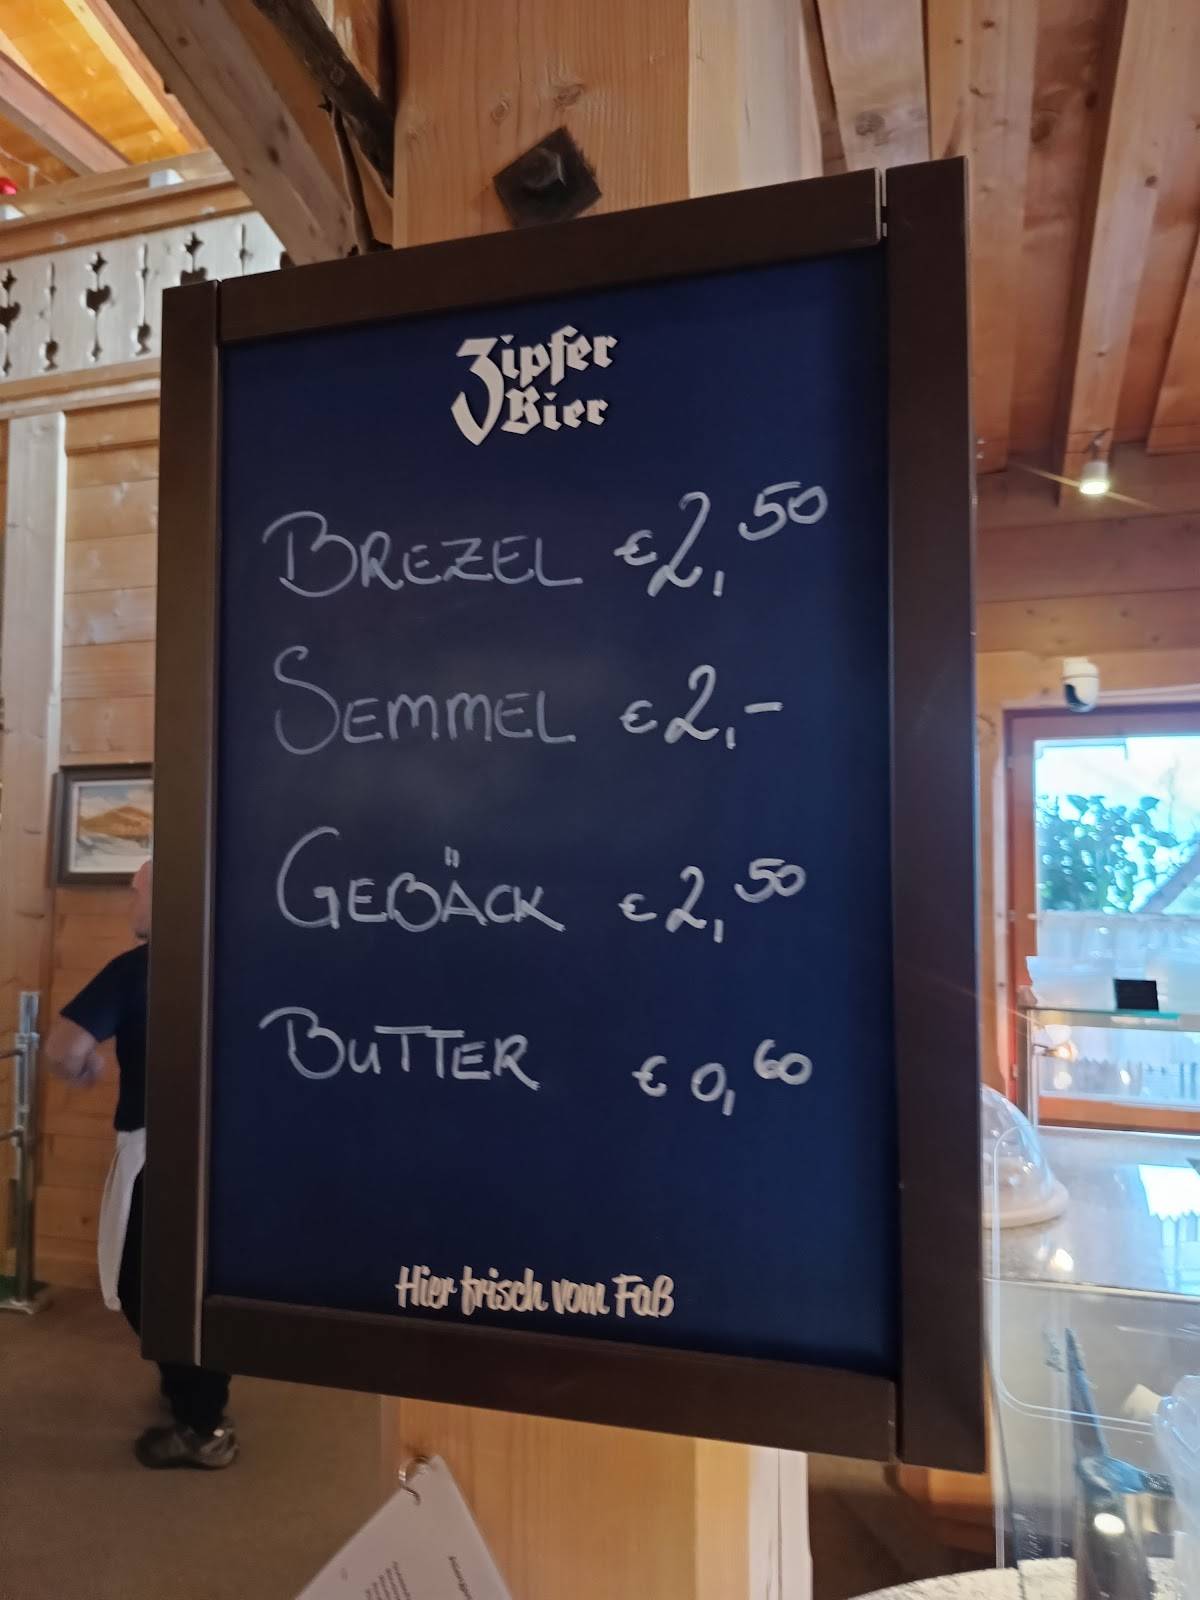 Zipfer
Bier
BREZEL €2,50
SEMMEL €2,-
GEBÄCK €2,50
BUTTER €0,60
Hier frisch vom Faß